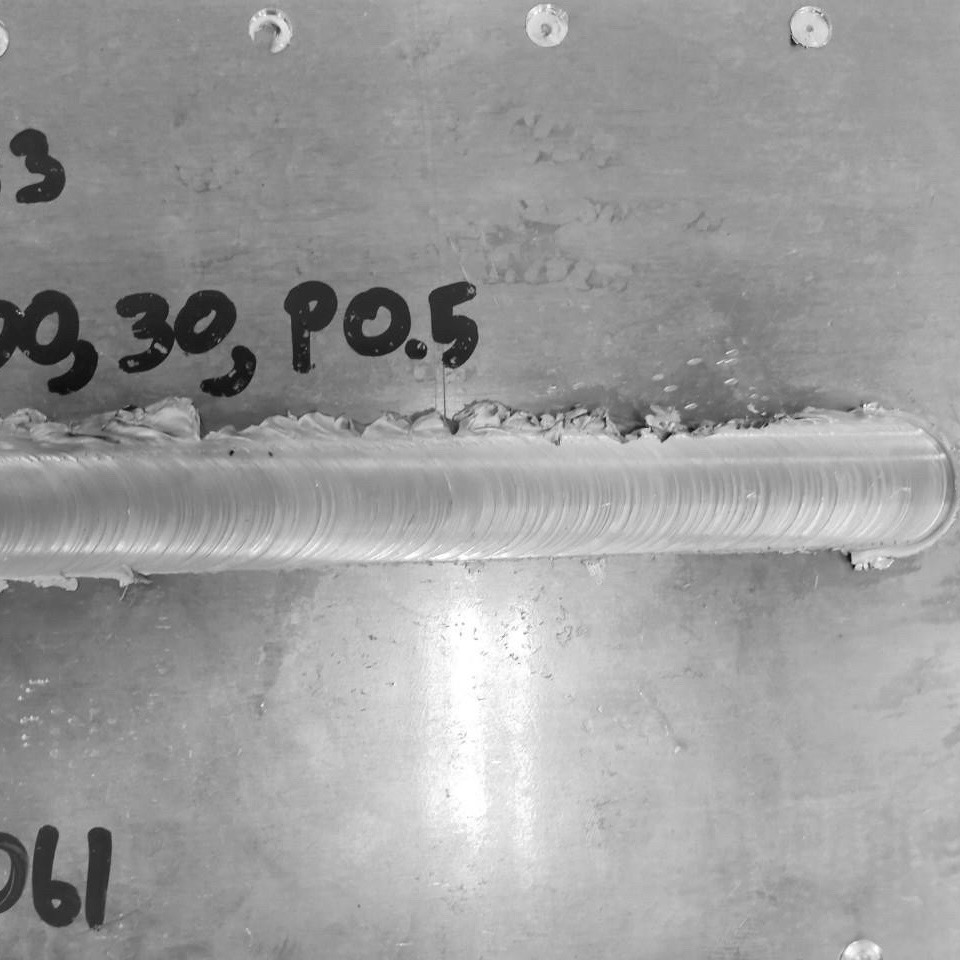 3
00, 30, P0.5
061